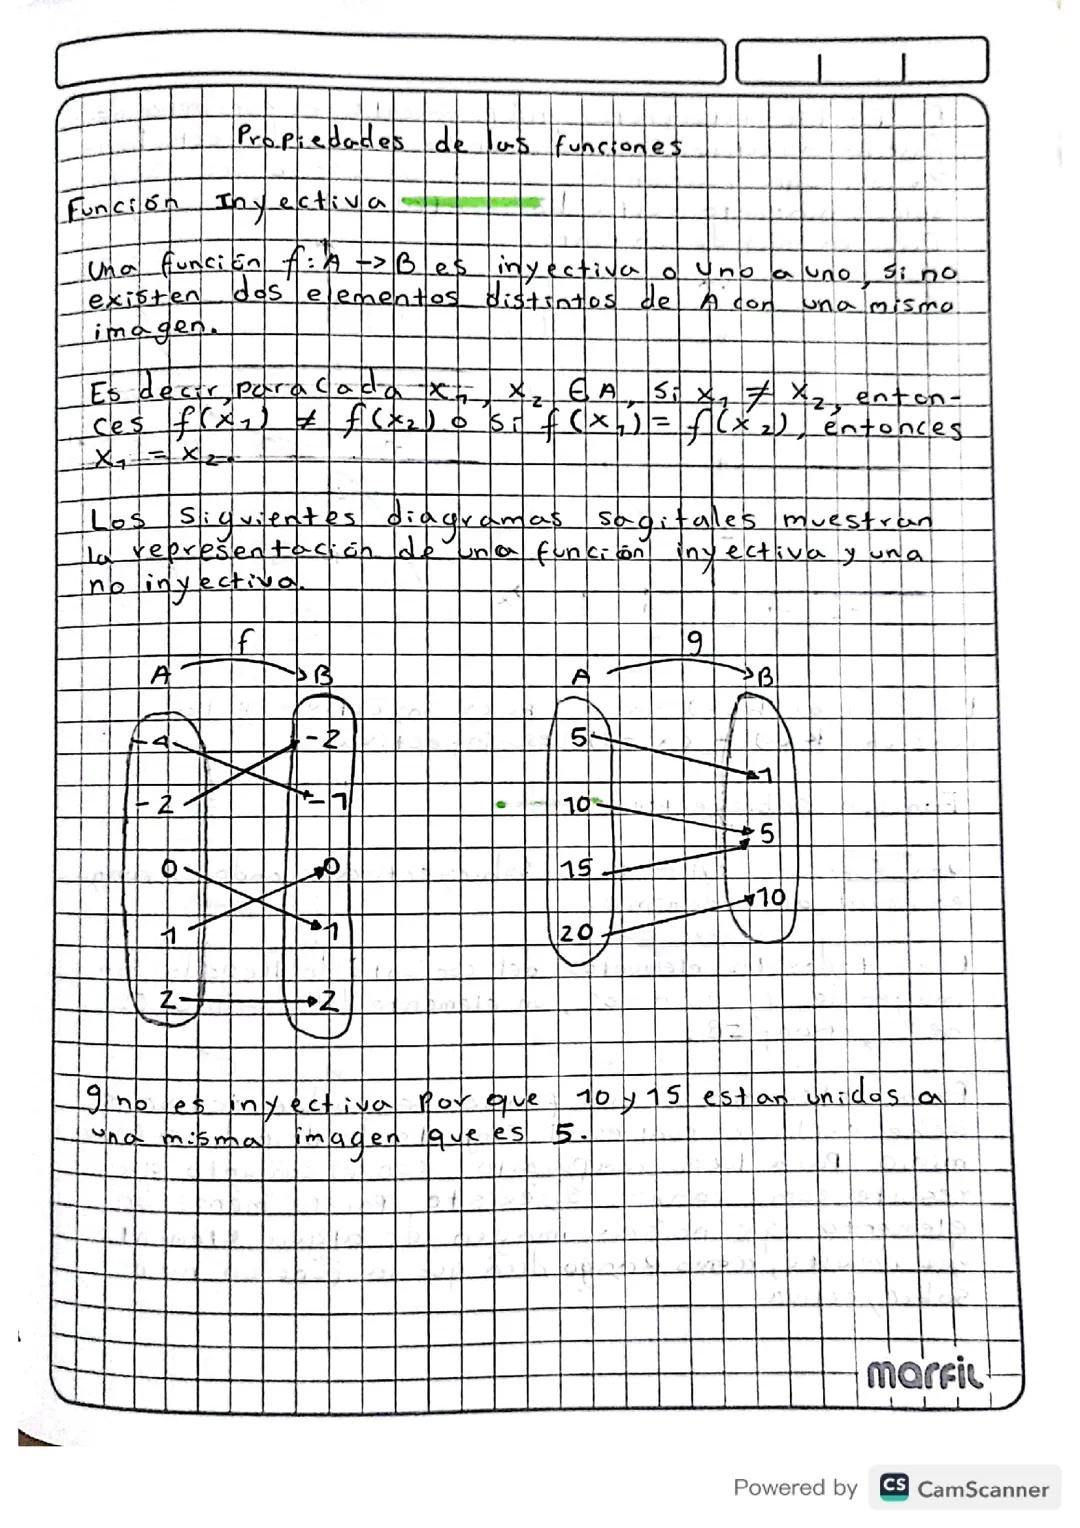 Propiedades de las funciones
Función Inyectiva
Una función f: A -> B es inyectiva o uno a uno, si no
existen dos elementos distintos de A con una misma
imagen.
Es decir, para cada x₁, x₂ ∈ A, si x₁ ≠ x₂, enton-
ces f(x₁) ≠ f(x₂) o si f(x₁) = f(x₂), entonces
x₁ = x₂.
Los siguientes diagramas sagitales muestran
la representación de una función inyectiva y una
no inyectiva.
f
A B
-4 -2
-2 -1
0 0
1 1
2 2
g
A B
5 1
10 5
15 10
20
g no es inyectiva por que 10 y 15 estan unidos a
una misma imagen que es 5.
marfil
Powered by CS CamScanner